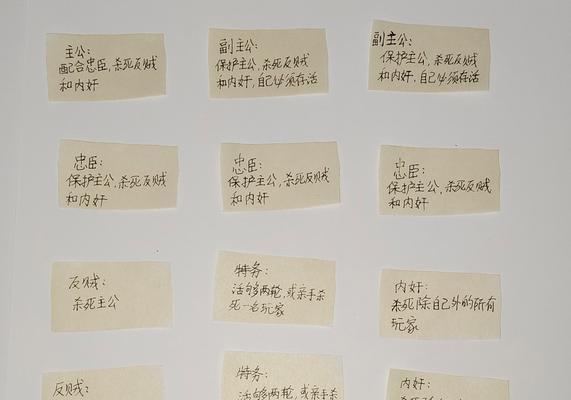 主公:
配合忠臣,杀死反贼
和内奸
副主公:
保护主公,杀死反贼
和内奸,自己必须存活
副主公:
保护主公,杀死反贼
和内奸,自己必须存活
忠臣:
保护主公,杀死反贼
和内奸
忠臣:
保护主公,杀死反贼
和内奸
忠臣:
保护主公,杀死反贼
和内奸
反贼:
杀死主公
特务:
活够两轮,或亲手杀
死一名玩家
内奸:
杀死除自己外的所有
玩家
反贼:
特务:
活够两轮,或亲手杀
内奸: